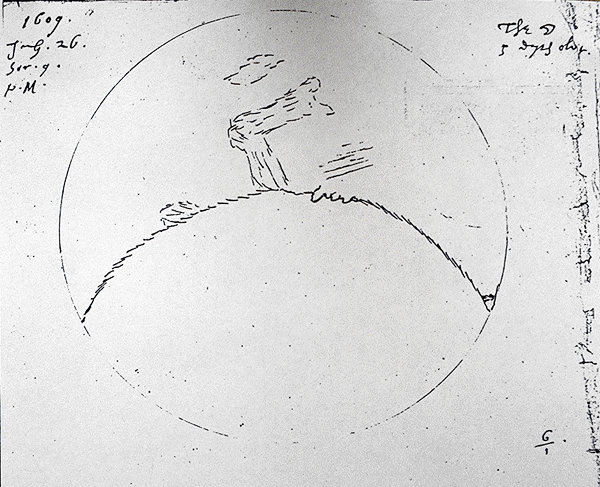 1609.
July. 26.
hor. 9.
P.M.
The ☽
5 dayes old.
6
1